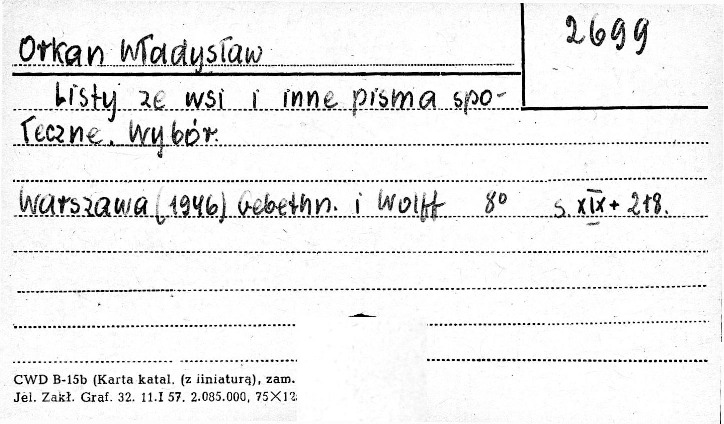 2699
Orkan Władysław
Listy ze wsi i inne pisma spo-
łeczne. Wybór.
Warszawa (1946) Gebethn. i Wolff 8° s. XIX + 218.
CWD B-15b (Karta katal. (z liniaturą), zam.
Jel. Zakł. Graf. 32. 11.I 57. 2.085.000, 75×12